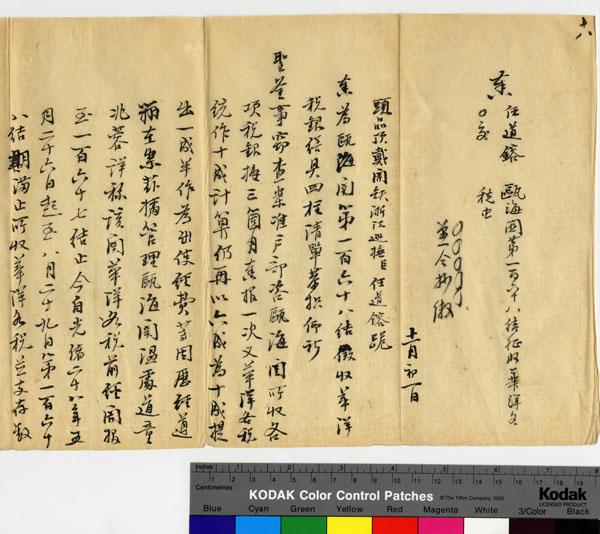 十八
奏 任道鎔 甌海関第一百六十八結征收華洋各
稅由
十一月初一日
頭品頂戴開缺浙江巡撫臣任道鎔跪
奏為甌海関第一百六十八結徵收華洋
稅銀繕具四柱清單恭摺仰祈
聖鑒事竊查案准戶部咨甌海関所收各
項稅銀按三箇月奏報一次又華洋各稅
統作十成計算仍再以六成為十成提
出一成半作為出使經費等因歷經遵
辦在案茲據管理甌海関溫處道童
兆蓉詳稱該関華洋各稅前經開報
至一百六十七結止今自光緒二十八年五
月二十六日起至八月二十九日第一百六十
八結期滿止所收華洋各稅並支存數
Inches 1 2 3 4 5 6 7 8
Centimetres 1 2 3 4 5 6 7 8 9 10 11 12 13 14 15 16 17 18 19
KODAK Color Control Patches © The Tiffen Company, 2000 Kodak
LICENSED PRODUCT
Blue Cyan Green Yellow Red Magenta White 3/Color Black